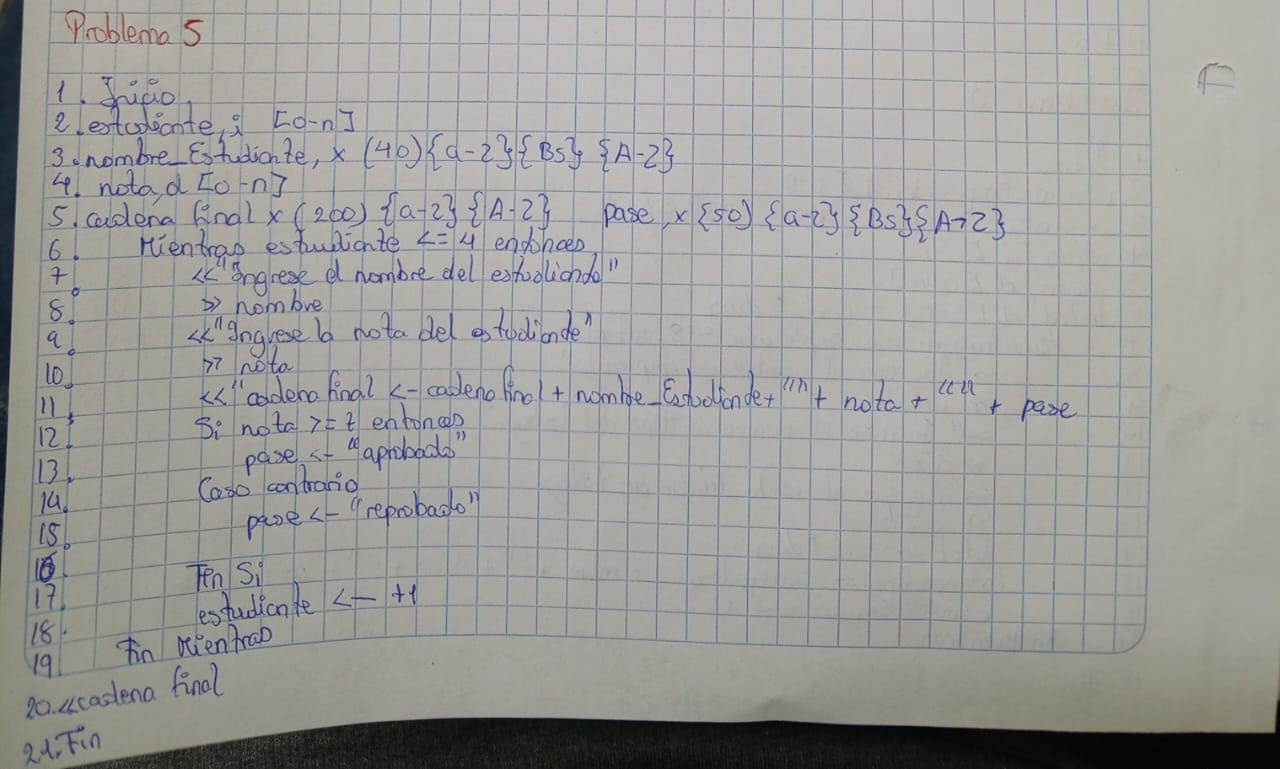 Problema 5
1. Inicio
2. estudiante, i [0-n]
3. nombre_Estudiante, x (40) {a-z} {Bs} {A-Z}
4. nota, d [0-n]
5. cadena final x (200) {a-z} {A-Z} pase, x {50) {a-z} {Bs} {A-Z}
6. Mientras estudiante <= 4 entonces
7. <<"Ingrese el nombre del estudiando"
8. >> nombre
9. <<"Ingrese la nota del estudiande"
10. >> nota
11. <<"cadena final <- cadena final + nombre_Estudiande + "" + nota + "" + pase
12. Si nota >= 7 entonces
13. pase <- "aprobado"
14. Caso contrario
15. pase <- "reprobado"
16.
17. Fin Si
18. estudiante <- +1
19. Fin Mientras
20. <<cadena final
21. Fin